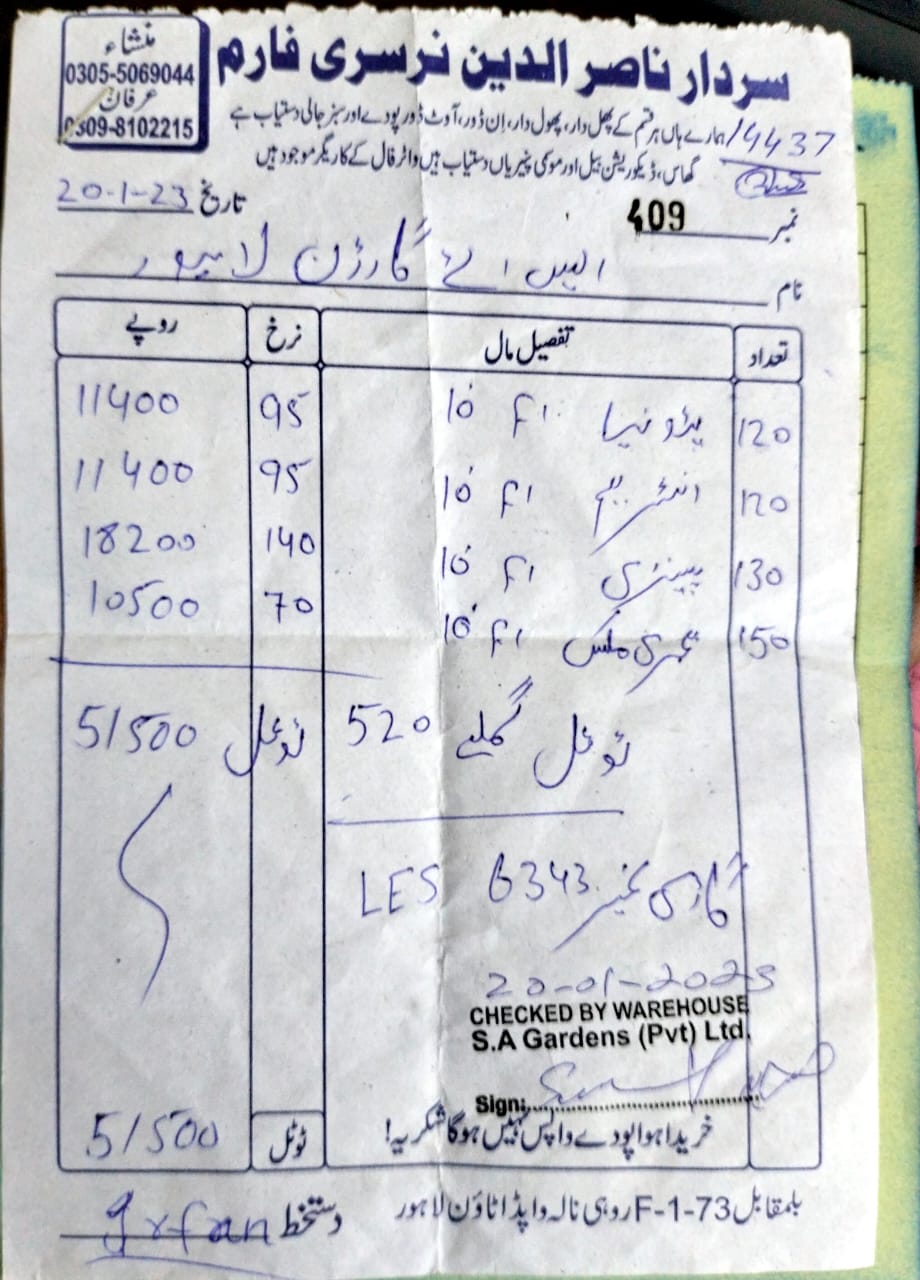 سردار ناصر الدین نرسری فارم
منشاء
0305-5069044
عرفان
0309-8102215
ہمارے ہاں ہر قسم کے پھل دار، پھول دار، اِن ڈور، آوٹ ڈور پودے اور سبز جالی دستیاب ہے
14437
گھاس، ڈیکوریشن بیل اور موسمی پنیریاں دستیاب ہیں واٹر فال کے کاریگر موجود ہیں
نمبر 409 تاریخ 20-1-23
نام ایس اے گارڈن لاہور
تعداد تفصیل مال نرخ روپے
120 پٹونیا F1 10 95 11400
120 F1 10 95 11400
130 پینزی F1 10 140 18200
150 مکس F1 10 70 10500
ٹوٹل گملے 520 ٹوٹل 51500
گاڑی نمبر LES 6343
20-01-2023
CHECKED BY WAREHOUSE
S.A Gardens (Pvt) Ltd.
Sign:
خریدا ہوا پودے واپس نہیں ہوگا شکریہ! ٹوٹل 51500
بلمقابل F-1-73 روہی نالہ واپڈا ٹاؤن لاہور
دستخط Irfan